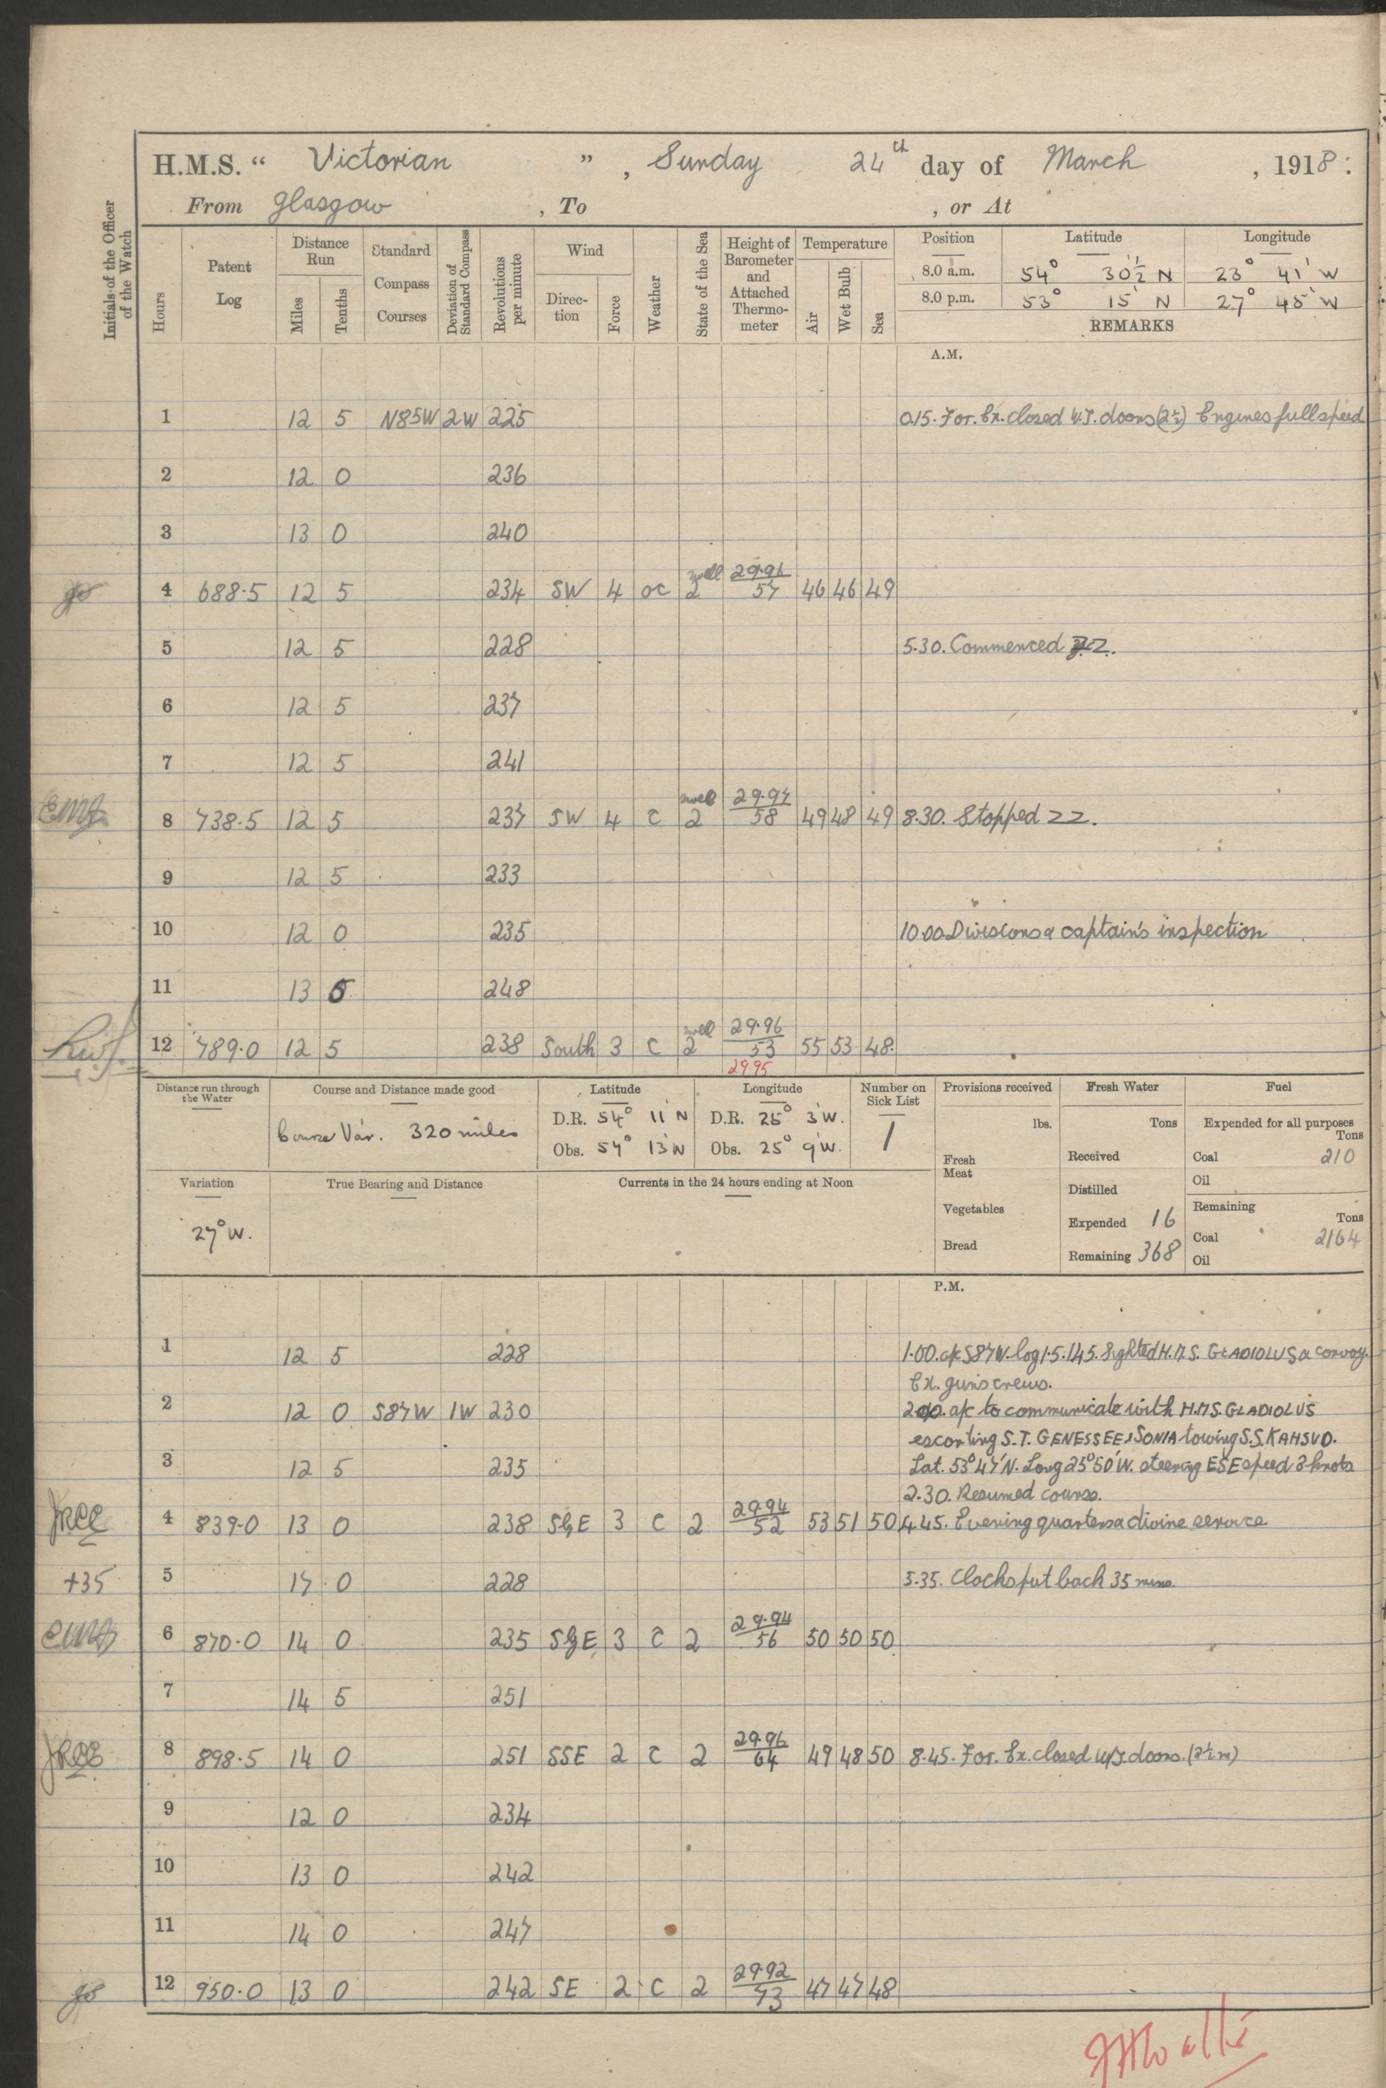 H.M.S. “ Victorian ” , Sunday 24th day of March , 1918 :
From Glasgow , To , or At
Initials of the Officer of the Watch
Hours
Patent Log
Distance Run
Miles
Tenths
Standard Compass Courses
Deviation of Standard Compass
Revolutions per minute
Wind
Direction
Force
Weather
State of the Sea
Height of Barometer and Attached Thermometer
Temperature
Air
Wet Bulb
Sea
Position Latitude Longitude
8.0 a.m. 54° 30½' N 23° 41' W
8.0 p.m. 53° 15' N 27° 45' W
REMARKS
A.M.
1 12 5 N85W 2W 225 0.15. For. Ex. closed W.T. doors (2½) Engines full speed
2 12 0 236
3 13 0 240
4 688.5 12 5 234 SW 4 oc swell 2 29.96 57 46 46 49
5 12 5 228 5.30. Commenced ZZ.
6 12 5 237
7 12 5 241
8 738.5 12 5 237 SW 4 c swell 2 29.97 58 49 48 49 8.30. Stopped ZZ.
9 12 5 233
10 12 0 235 10.00 Divisions & captain's inspection
11 13 5 248
12 789.0 12 5 238 South 3 C swell 2 29.96 53 55 53 48
29.95
Distance run through the Water
Course and Distance made good
Course Var. 320 miles
Latitude
D.R. 54° 11' N
Obs. 54° 13' N
Longitude
D.R. 25° 3' W.
Obs. 25° 9' W.
Number on Sick List
1
Provisions received
lbs.
Fresh Meat
Vegetables
Bread
Fresh Water
Tons
Received
Distilled
Expended 16
Remaining 368
Fuel
Expended for all purposes
Tons
Coal 210
Oil
Remaining
Tons
Coal 2164
Oil
Variation
27° W.
True Bearing and Distance
Currents in the 24 hours ending at Noon
P.M.
1 12 5 228 1.00. a/c S87W. log 1.5. 1.45. Sighted H.M.S. GLADIOLUS & convoy.
Ex. guns crews.
2 12 0 S87W 1W 230 2.00. a/c to communicate with H.M.S. GLADIOLUS
escorting S.T. GENESSEE & SONIA towing S.S. KAHSVD.
3 12 5 235 Lat. 53° 47' N. Long 25° 50' W. steering ESE speed 3 knots
2.30. Resumed course.
JRCC 4 839.0 13 0 238 SbE 3 C 2 29.94 52 53 51 50 4.45. Evening quarters & divine service
+35 5 17 0 228 5.35. Clocks put back 35 mins.
6 870.0 14 0 235 SbE 3 C 2 29.94 56 50 50 50
7 14 5 251
8 898.5 14 0 251 SSE 2 C 2 29.96 64 49 48 50 8.45. For. Ex. closed W/T. doors. (2½ m)
9 12 0 234
10 13 0 242
11 14 0 247
12 950.0 13 0 242 SE 2 C 2 29.92 73 47 47 48